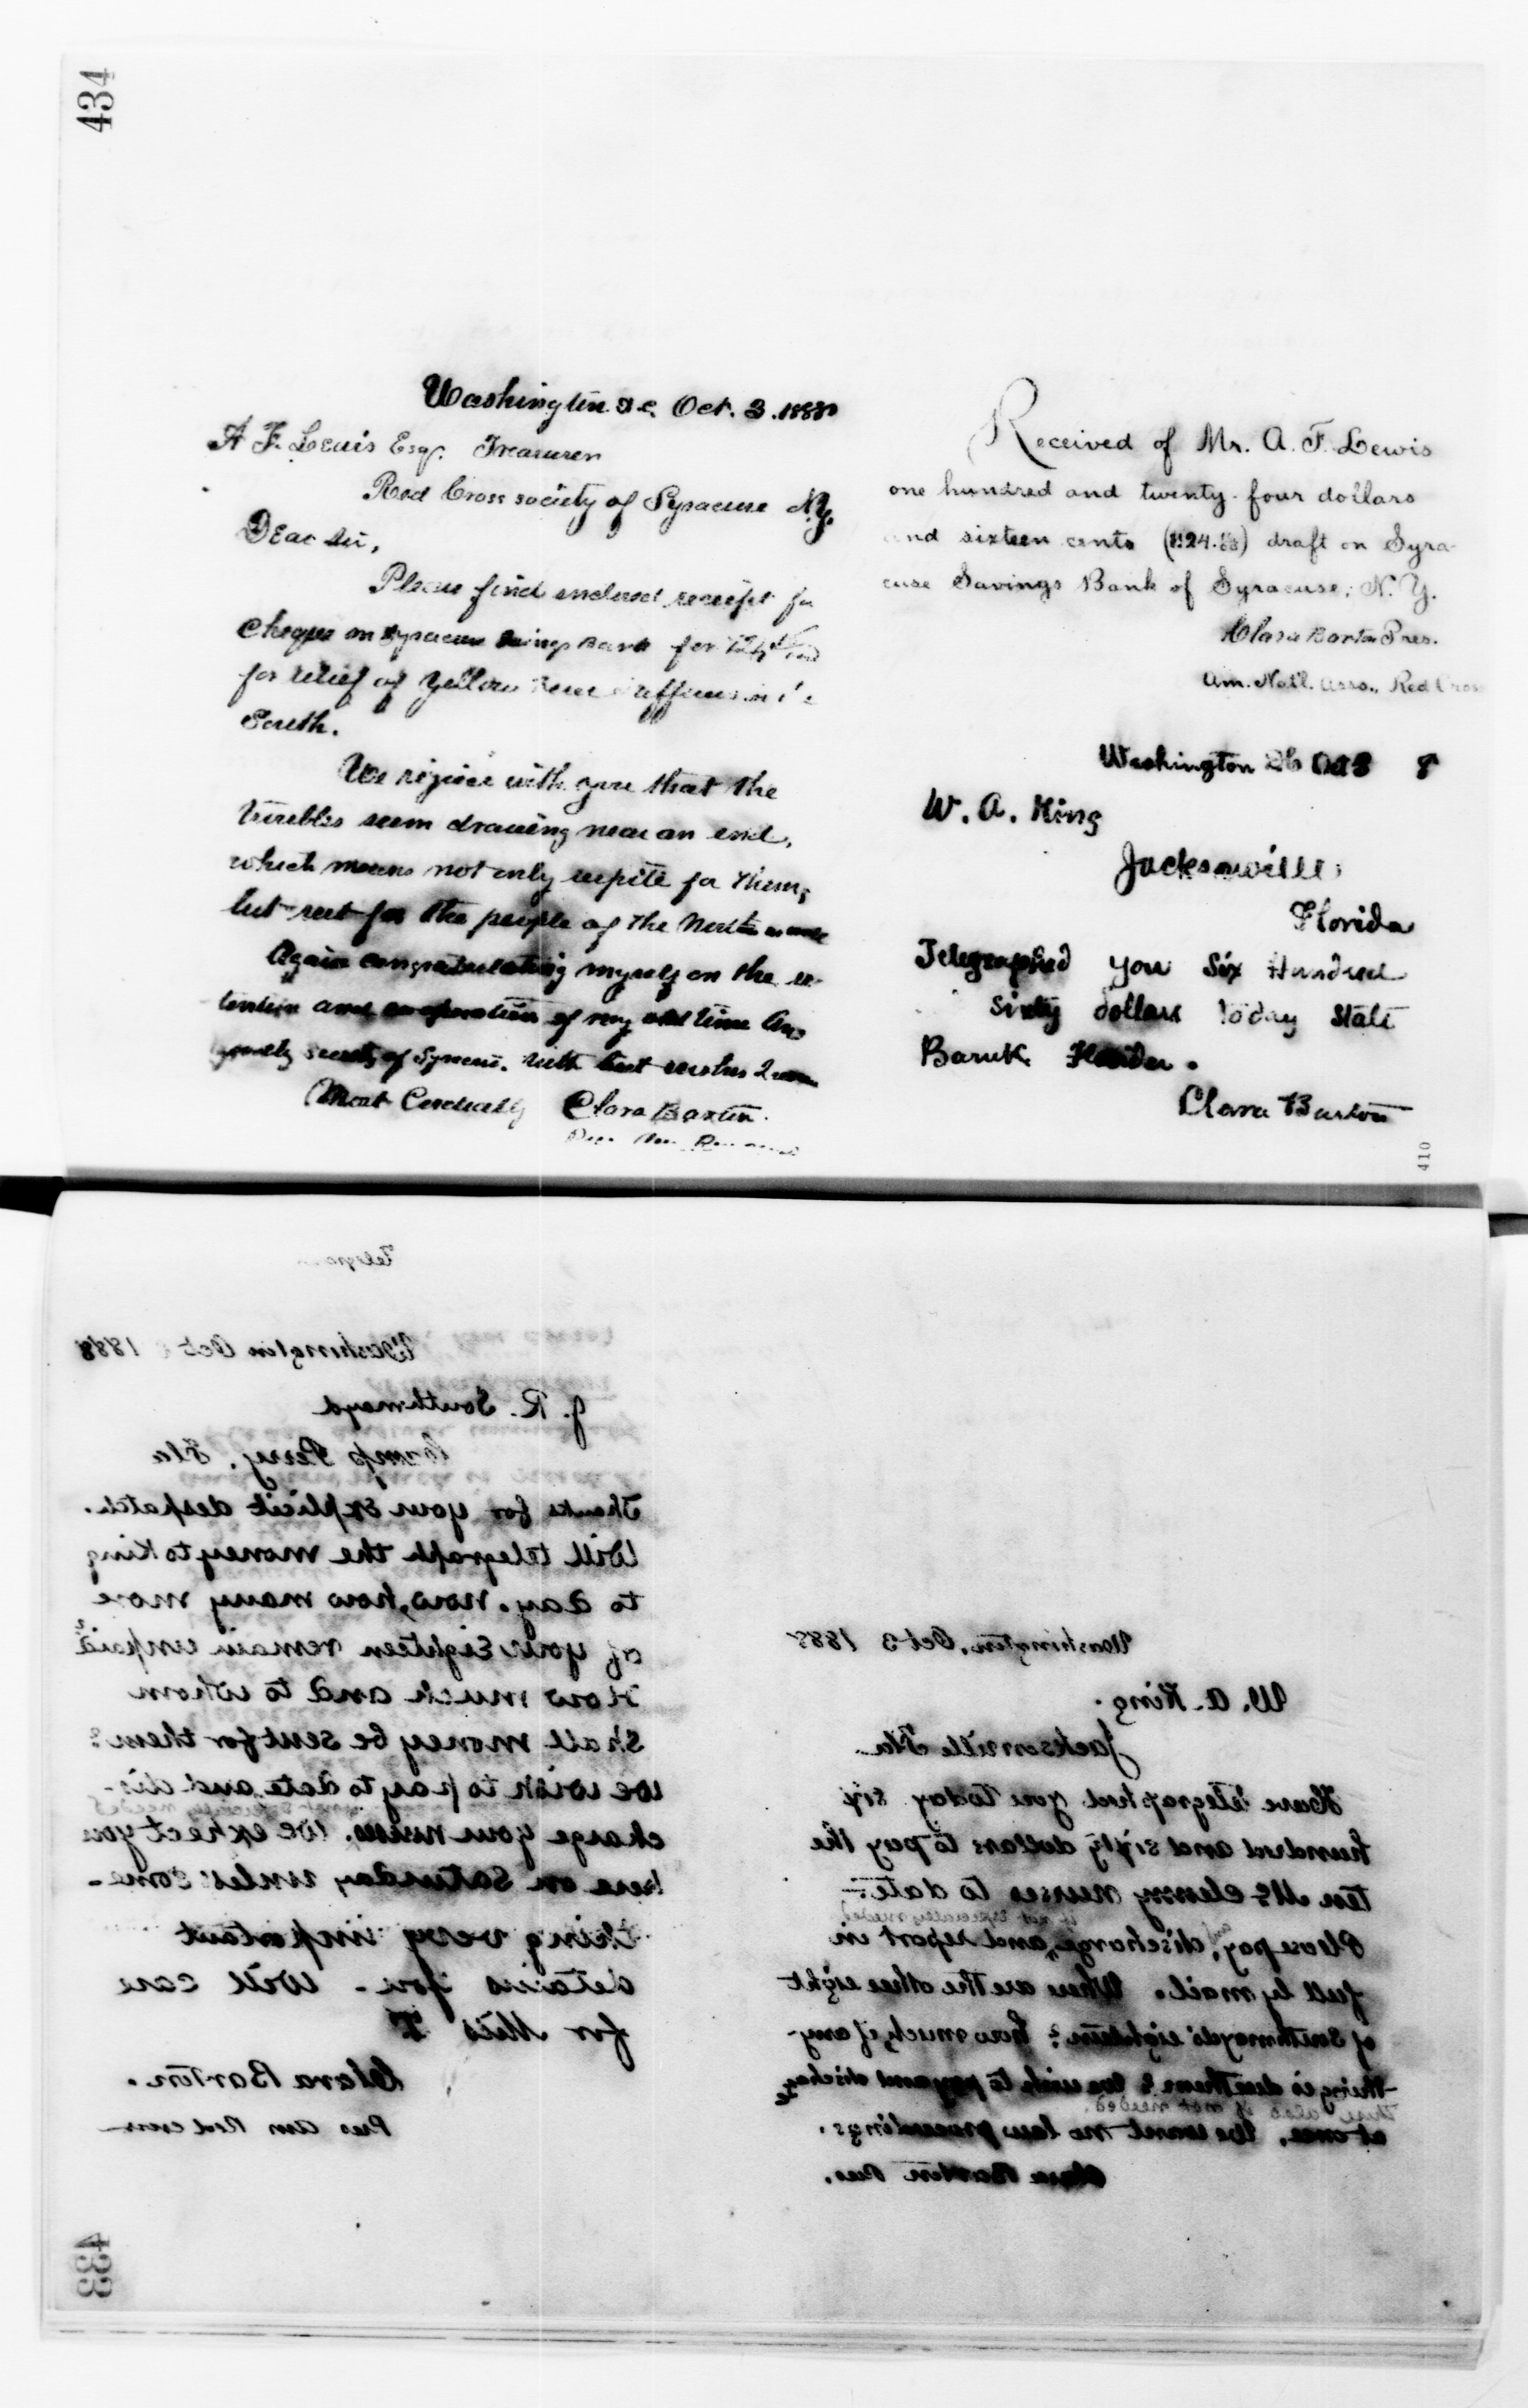 434
Washington D.C. Oct. 3. 1888
A. F. Lewis Esq. Treasurer
Red Cross society of Syracuse N.Y.
Dear Sir,
Please find enclosed receipt for
Cheque on Syracuse Savings Bank for
for relief of Yellow Fever sufferers in the
South.
We rejoice with you that the
troubles seem drawing near an end,
which means not only respite for them,
but rest for the people of the North as well
Again congratulating myself on the re-
tention and cooperation of my old time
society of Syracuse. With best wishes I am
Most Cordially Clara Barton.
Received of Mr. A. F. Lewis
one hundred and twenty-four dollars
and sixteen cents draft on Syra-
cuse Savings Bank of Syracuse, N. Y.
Clara Barton Pres.
Am. Natl. Asso., Red Cross
Washington DC Oct 3 8
W. A. King
Jacksonville,
Florida
Telegraphed you Six Hundred
Sixty dollars today State
Bank Florida.
Clara Barton
410
Telegram
Washington Oct 1888
J. R. Southmayd
Camp Perry, Fla
Thanks for your explicit despatch.
Will telegraph the money to King
to day. Now, how many more
of your eighteen remain unpaid?
How much and to whom
shall money be sent for them?
We wish to pay to date and dis-
charge your nurses. We expect you
here on Saturday unless some-
thing very important
detains you - Will care
for Miss T
Clara Barton.
Pres Am Red Cross
Washington, Oct 3 1888
W. A. King.
Jacksonville Fla.
Have telegraphed you today six
hundred and sixty dollars to pay the
ten McClenny nurses to date -
if not especially needed
Please pay, discharge, and report in
full by mail. Where are the other eight
of Southmayds eighteen? how much, if any-
thing is due them? We wish to pay and discharge
these also if not needed.
at once. We want no law proceedings.
Clara Barton Pres.
433